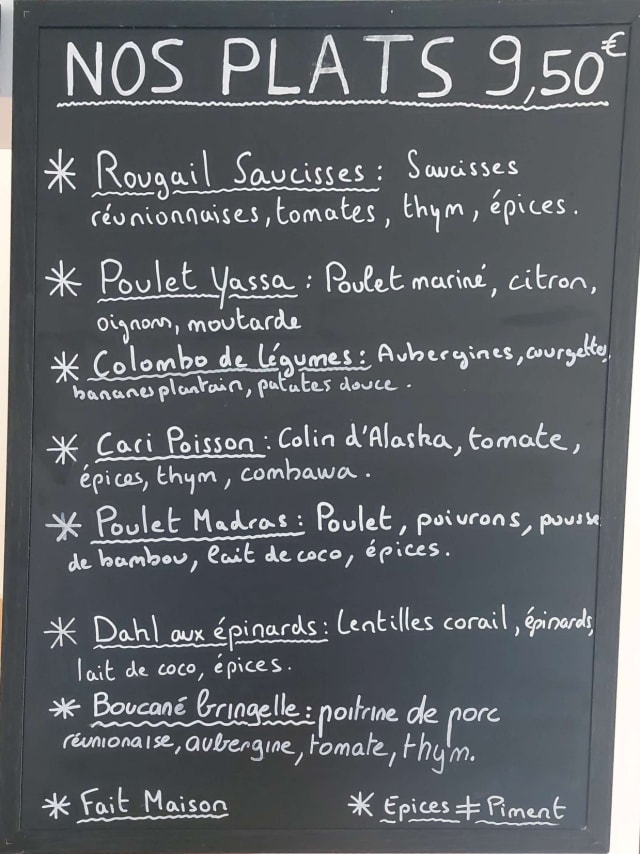 NOS PLATS 9,50€
* Rougail Saucisses : Saucisses
réunionnaises, tomates, thym, épices.
* Poulet Yassa : Poulet mariné, citron,
oignons, moutarde
* Colombo de légumes : Aubergines, courgettes,
bananes plantain, patates douce.
* Cari Poisson : Colin d'Alaska, tomate,
épices, thym, combawa.
* Poulet Madras : Poulet, poivrons, pousse
de bambou, lait de coco, épices.
* Dahl aux épinards : Lentilles corail, épinards,
lait de coco, épices.
* Boucané bringelle : poitrine de porc
réunionaise, aubergine, tomate, thym.
* Fait Maison * Epices ≠ Piment